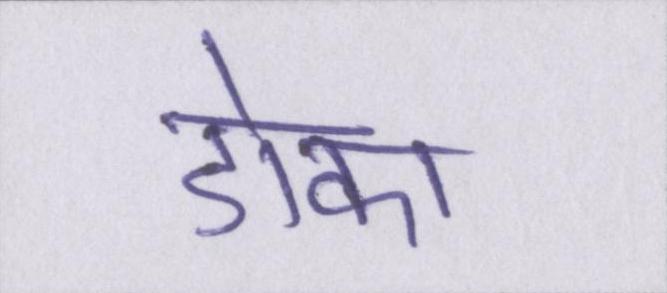 डोका